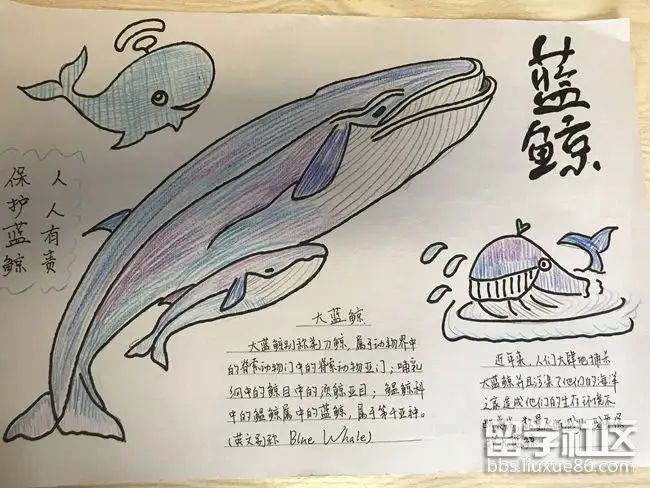 蓝鲸
人人有责
保护蓝鲸
大蓝鲸
大蓝鲸别称剃刀鲸，属于动物界中
的脊索动物门中的脊索动物亚门；哺乳
纲中的鲸目中的须鲸亚目；鳁鲸科
中的鳁鲸属中的蓝鲸，属于第千亚种。
(英文别称 Blue Whale)
近年来，人们大肆地捕杀
大蓝鲸并且污染了他们的海洋
之家造成他们的生存环境不
留学社区
bbs.liuxue86.com